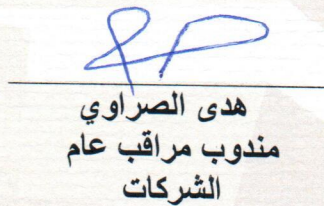 هدى الصراوي
مندوب مراقب عام
الشركات